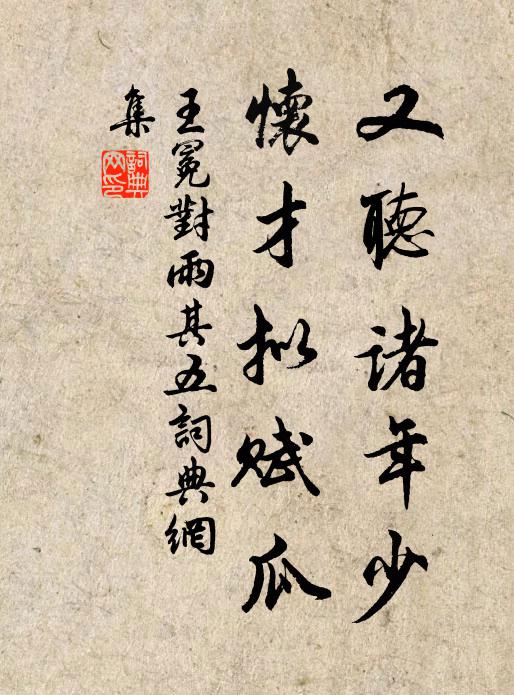 又聽諸年少
懷才拟賦瓜
王冕對雨其五詞典網
集
詞典
网印